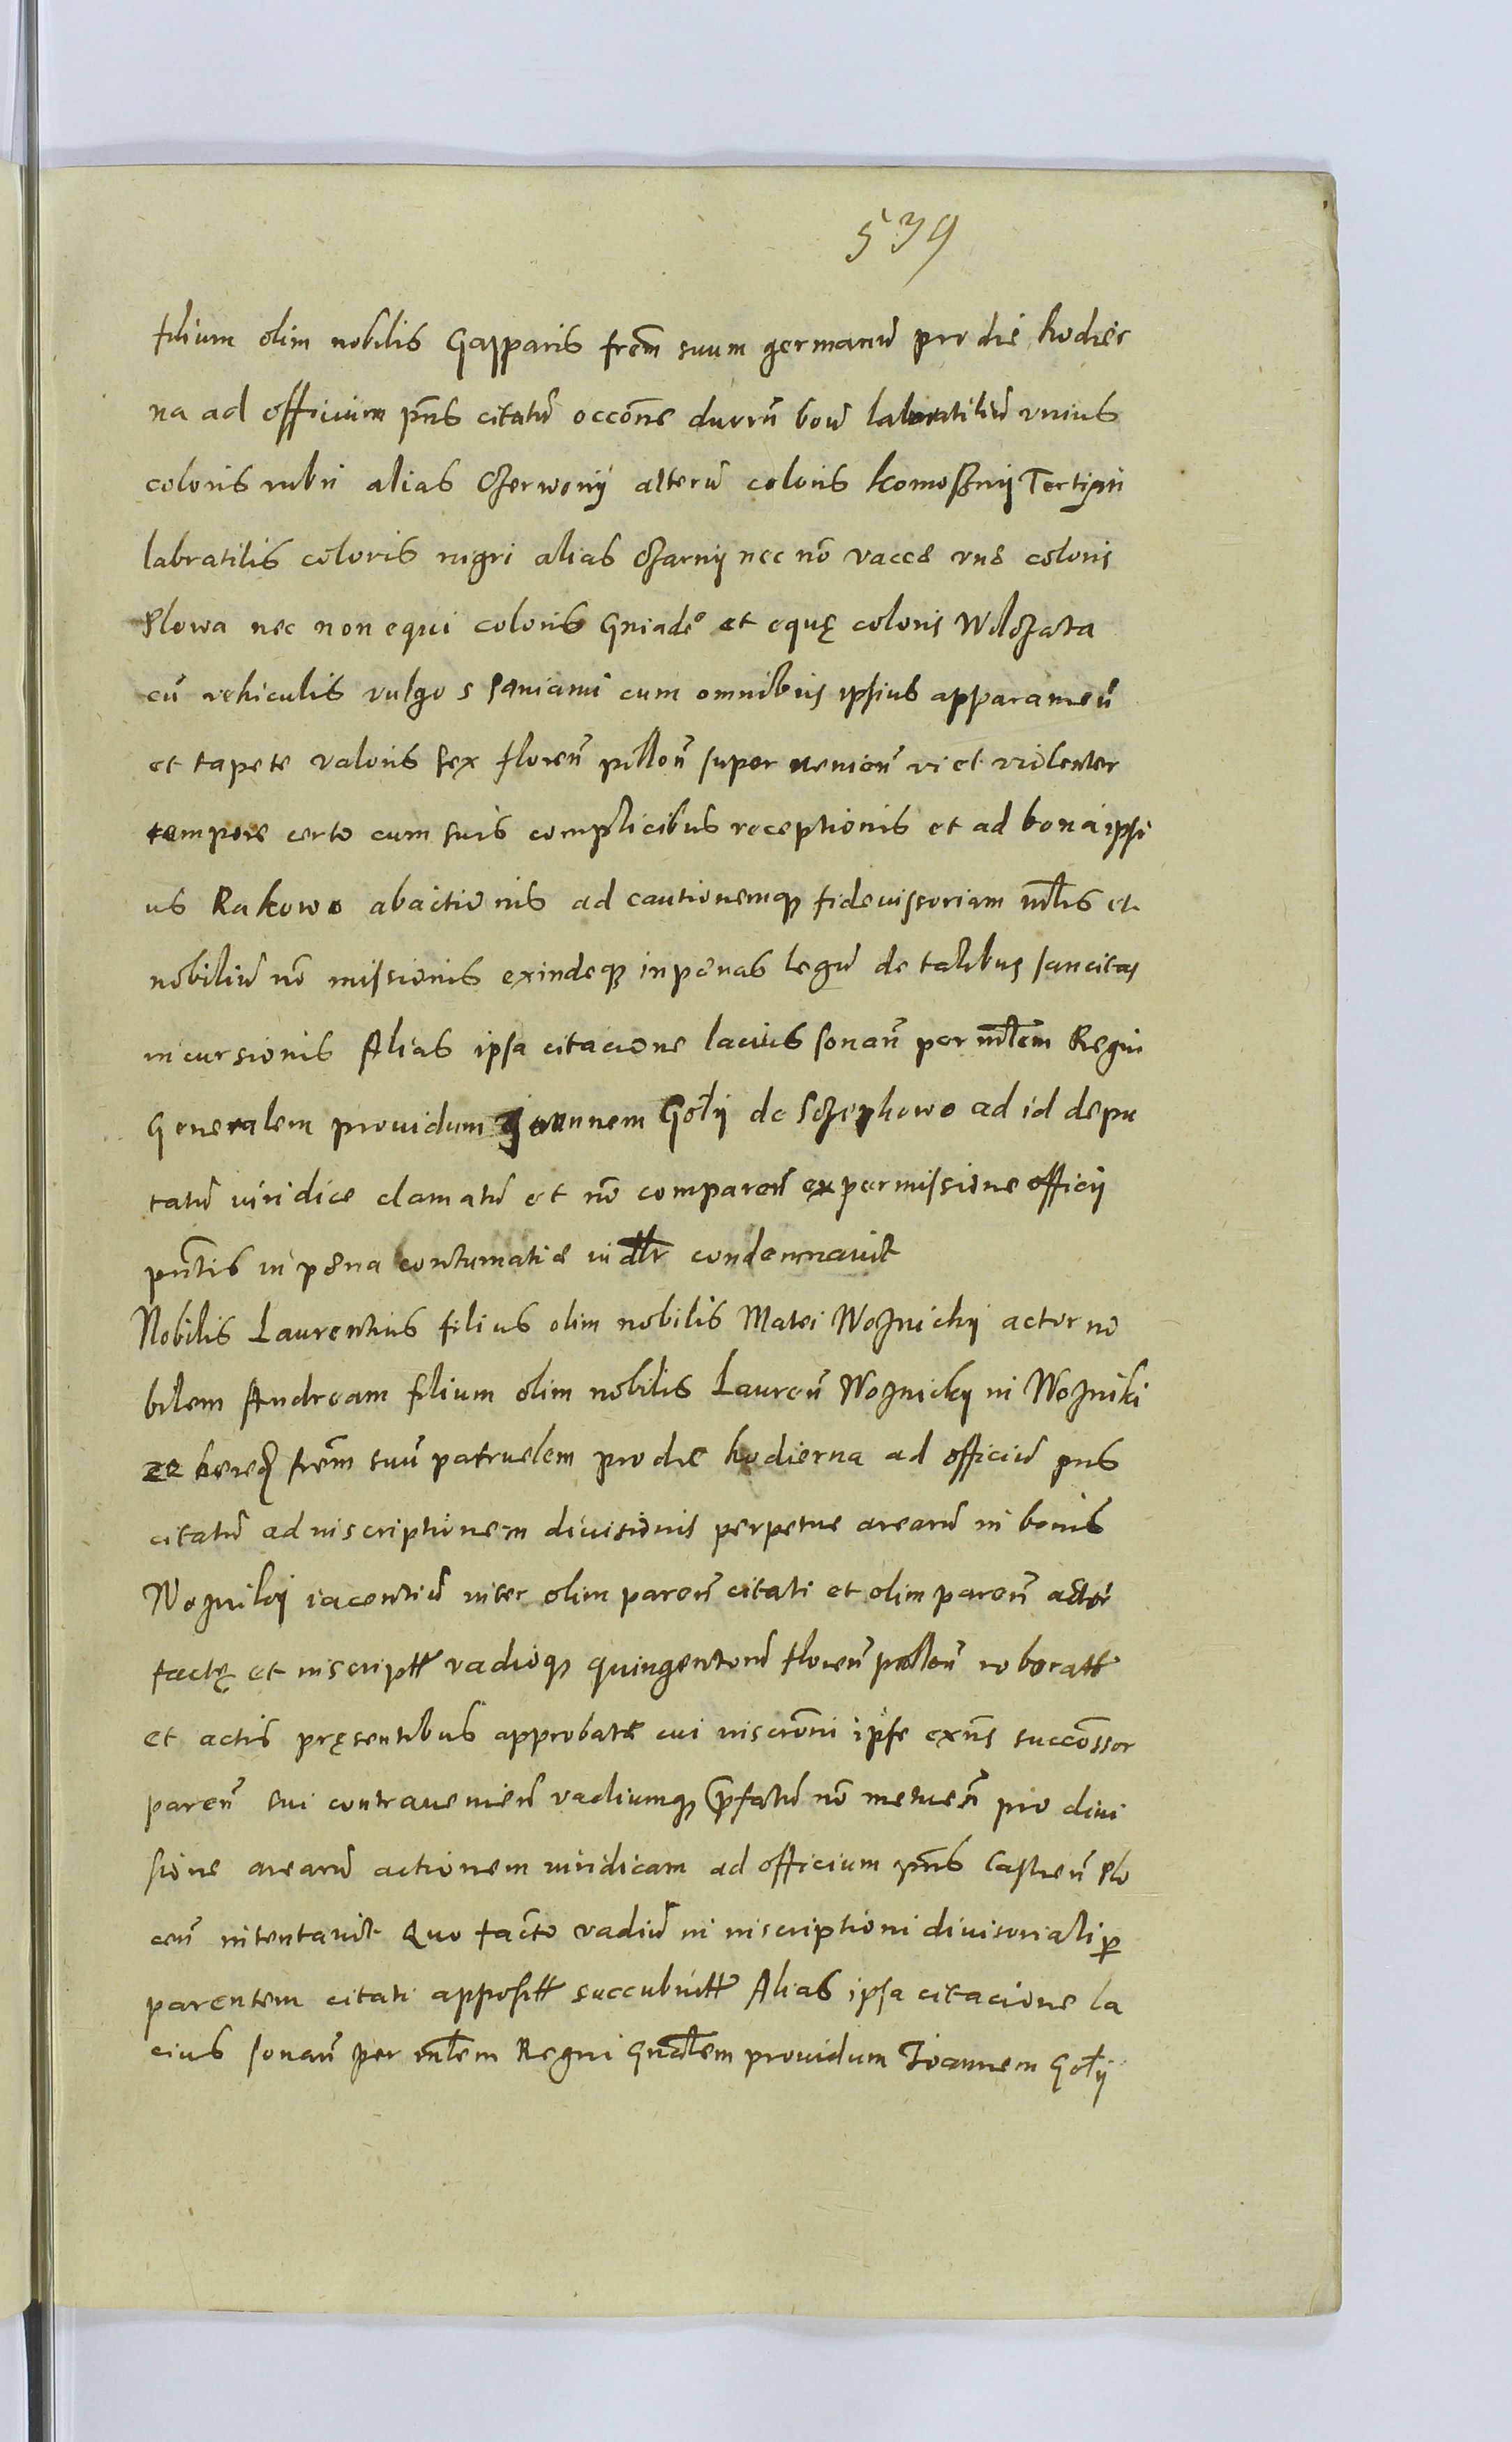 539
filium olim nobilis Gasparis frēm suum germanū pro die hodier
na ad officium pn̄s citatū occōne duorū boū laboratiliū unius
coloris rubri alias Czerwonÿ alterū coloris komosznÿ Tertium
labratilis coloris nigri alias Czarnÿ nec nō vacce une coloris
Plowa nec non equi coloris Gniadego et equę coloris Wilczata
cū vehiculis vulgo s Saniami cum omnibus ipsius apparamen̄
et tapete valoris sex floren̄ pollon̄ super venion̄ vi et violenter
tempore certo cum suis complicibus receptionis et ad bona ipsi
us Rakowo abactionis ad cautionemq̨ fideiussoriam mlt̄is et
nobiliū nō missionis exindeq̨ in pænas legū de talibus sancitas
incursionis Alias ipsa citacione lacius sonan̄ per mlt̄em Regni
Generalem providum Joannem Gołÿ de Szczepkowo ad id depu
tatū iuridice clamatū et nō comparen̄ ex permissione officÿ
pn̄tis in pæna contumatiæ in dtr condemnavit
Nobilis Laurentius filius olim nobilis Matei Woznickÿ actor no
bilem Andream filium olim nobilis Lauren̄ Woznickÿ in Wozniki
hered frēm suū patruelem pro die hodierna ad officiū pn̄s
citatū ad inscriptionem divisionis perpetue arearū in bonis
Woznikÿ iacentiū inter olim paren̄ citati et olim paren̄ actoris
factę et inscriptæ vadioq̨ quingentorū floren̄ pollon̄ roboratæ
et actis pręsentibus approbatæ cui inscrōni ipse exn̄s successor
paren̄ sui contravenien̄ vadiumq̨ p̄fatū nō metuen̄ pro divi
sione arearū actionem iuridicam ad officium pn̄s Castren̄ Plo
cen̄ intentavit Quo facto vadiū in inscriptioni divisoriali p̱
parentem citati apposit succubuit Alias ipsa citacione la
cius sonan̄ per mlt̄em Regni Gnāłem providum Joannem Gołÿ